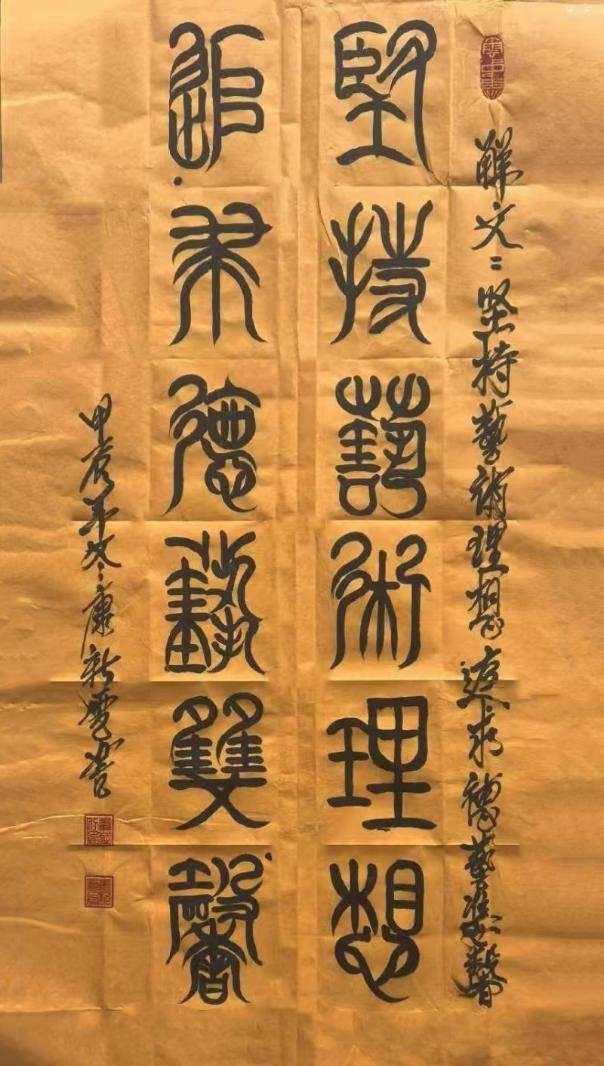 釋文：堅持藝術理想追求德藝雙馨
堅持藝術理想
追求德藝雙馨
甲辰年冬康新書